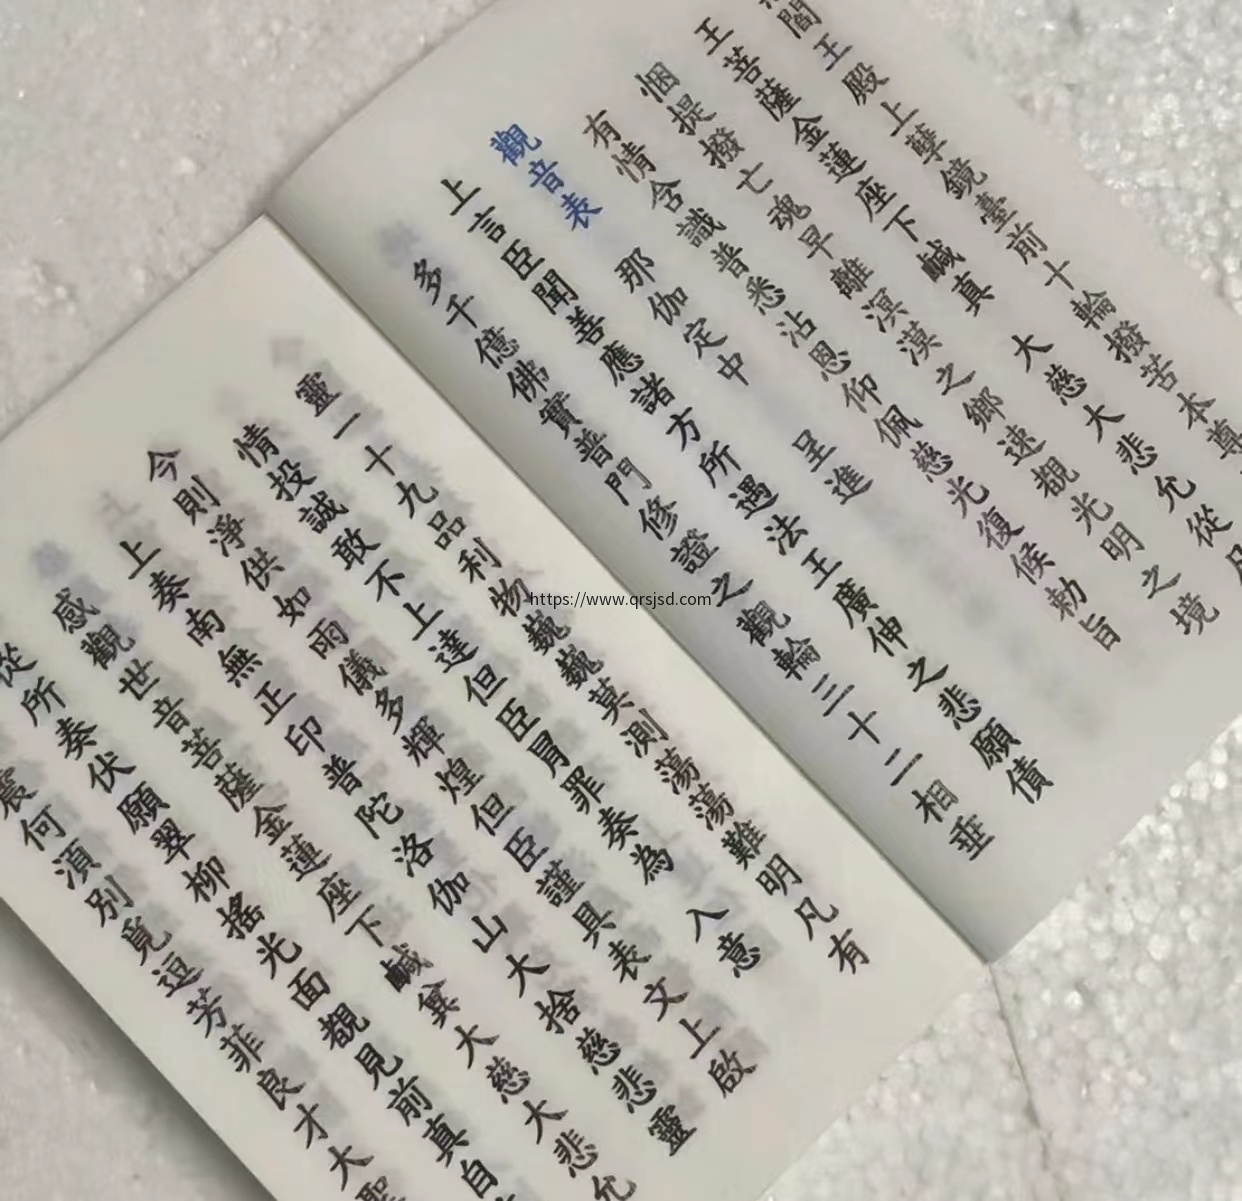 閻王殿上孽鏡臺前十輪撥苦本尊
王菩薩金蓮座下鹹真 大慈大悲允從凡
悃提撥亡魂早離溟漠之鄉速覩光明之境
有情含識普悉沾恩仰佩慈光復候勅旨
觀音表 那伽定中 呈進
上言臣聞善應諸方所遇法王廣伸之悲願債
多千億佛實普門修證之觀輪三十二相垂
靈一十九品利物巍巍莫測蕩蕩難明凡有
情投誠敢不上達但臣冐罪奏為 入意
今則淨供如雨儀多輝煌但臣謹具表文上啟
上奏南無正印普陀洛伽山大捨慈悲靈
感觀世音菩薩金蓮座下鹹大慈大悲允
從所奏伏願翠柳搖光面覩見前真自
震何湏別覓逗芳菲良才大聖
https://www.qrsjsd.com